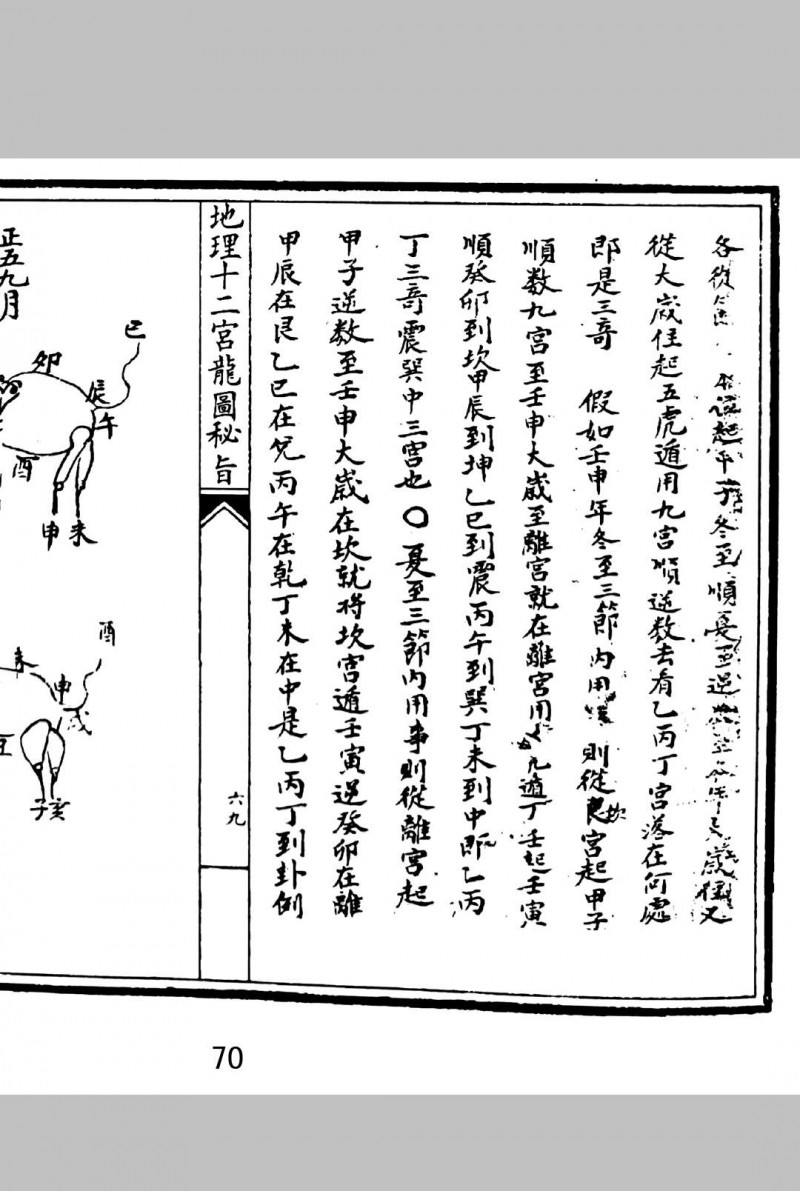 各從起甲子冬至順夏至逆歲在又
從大歲住起五虎遁用九宮順逆数去看乙丙丁宮落在何處
即是三奇 假如壬申年冬至三節内用則從艮坎宮起甲子
順数九宮至壬申大歲至離宮就在離宮用九遁丁壬起壬寅
順癸卯到坎甲辰到坤乙巳到震丙午到巽丁未到中即乙丙
丁三奇震巽中三宮也〇夏至三節内用事則從離宮起
甲子逆数至壬申大歲在坎就将坎宮遁壬寅逆癸卯在離
甲辰在艮乙巳在兌丙午在乾丁未在中是乙丙丁到卦例
地理十二宮龍圖秘旨
六九
正五九月
巳
卯
辰
午
酉
申未
酉
未
申
戌
丑
子亥
70